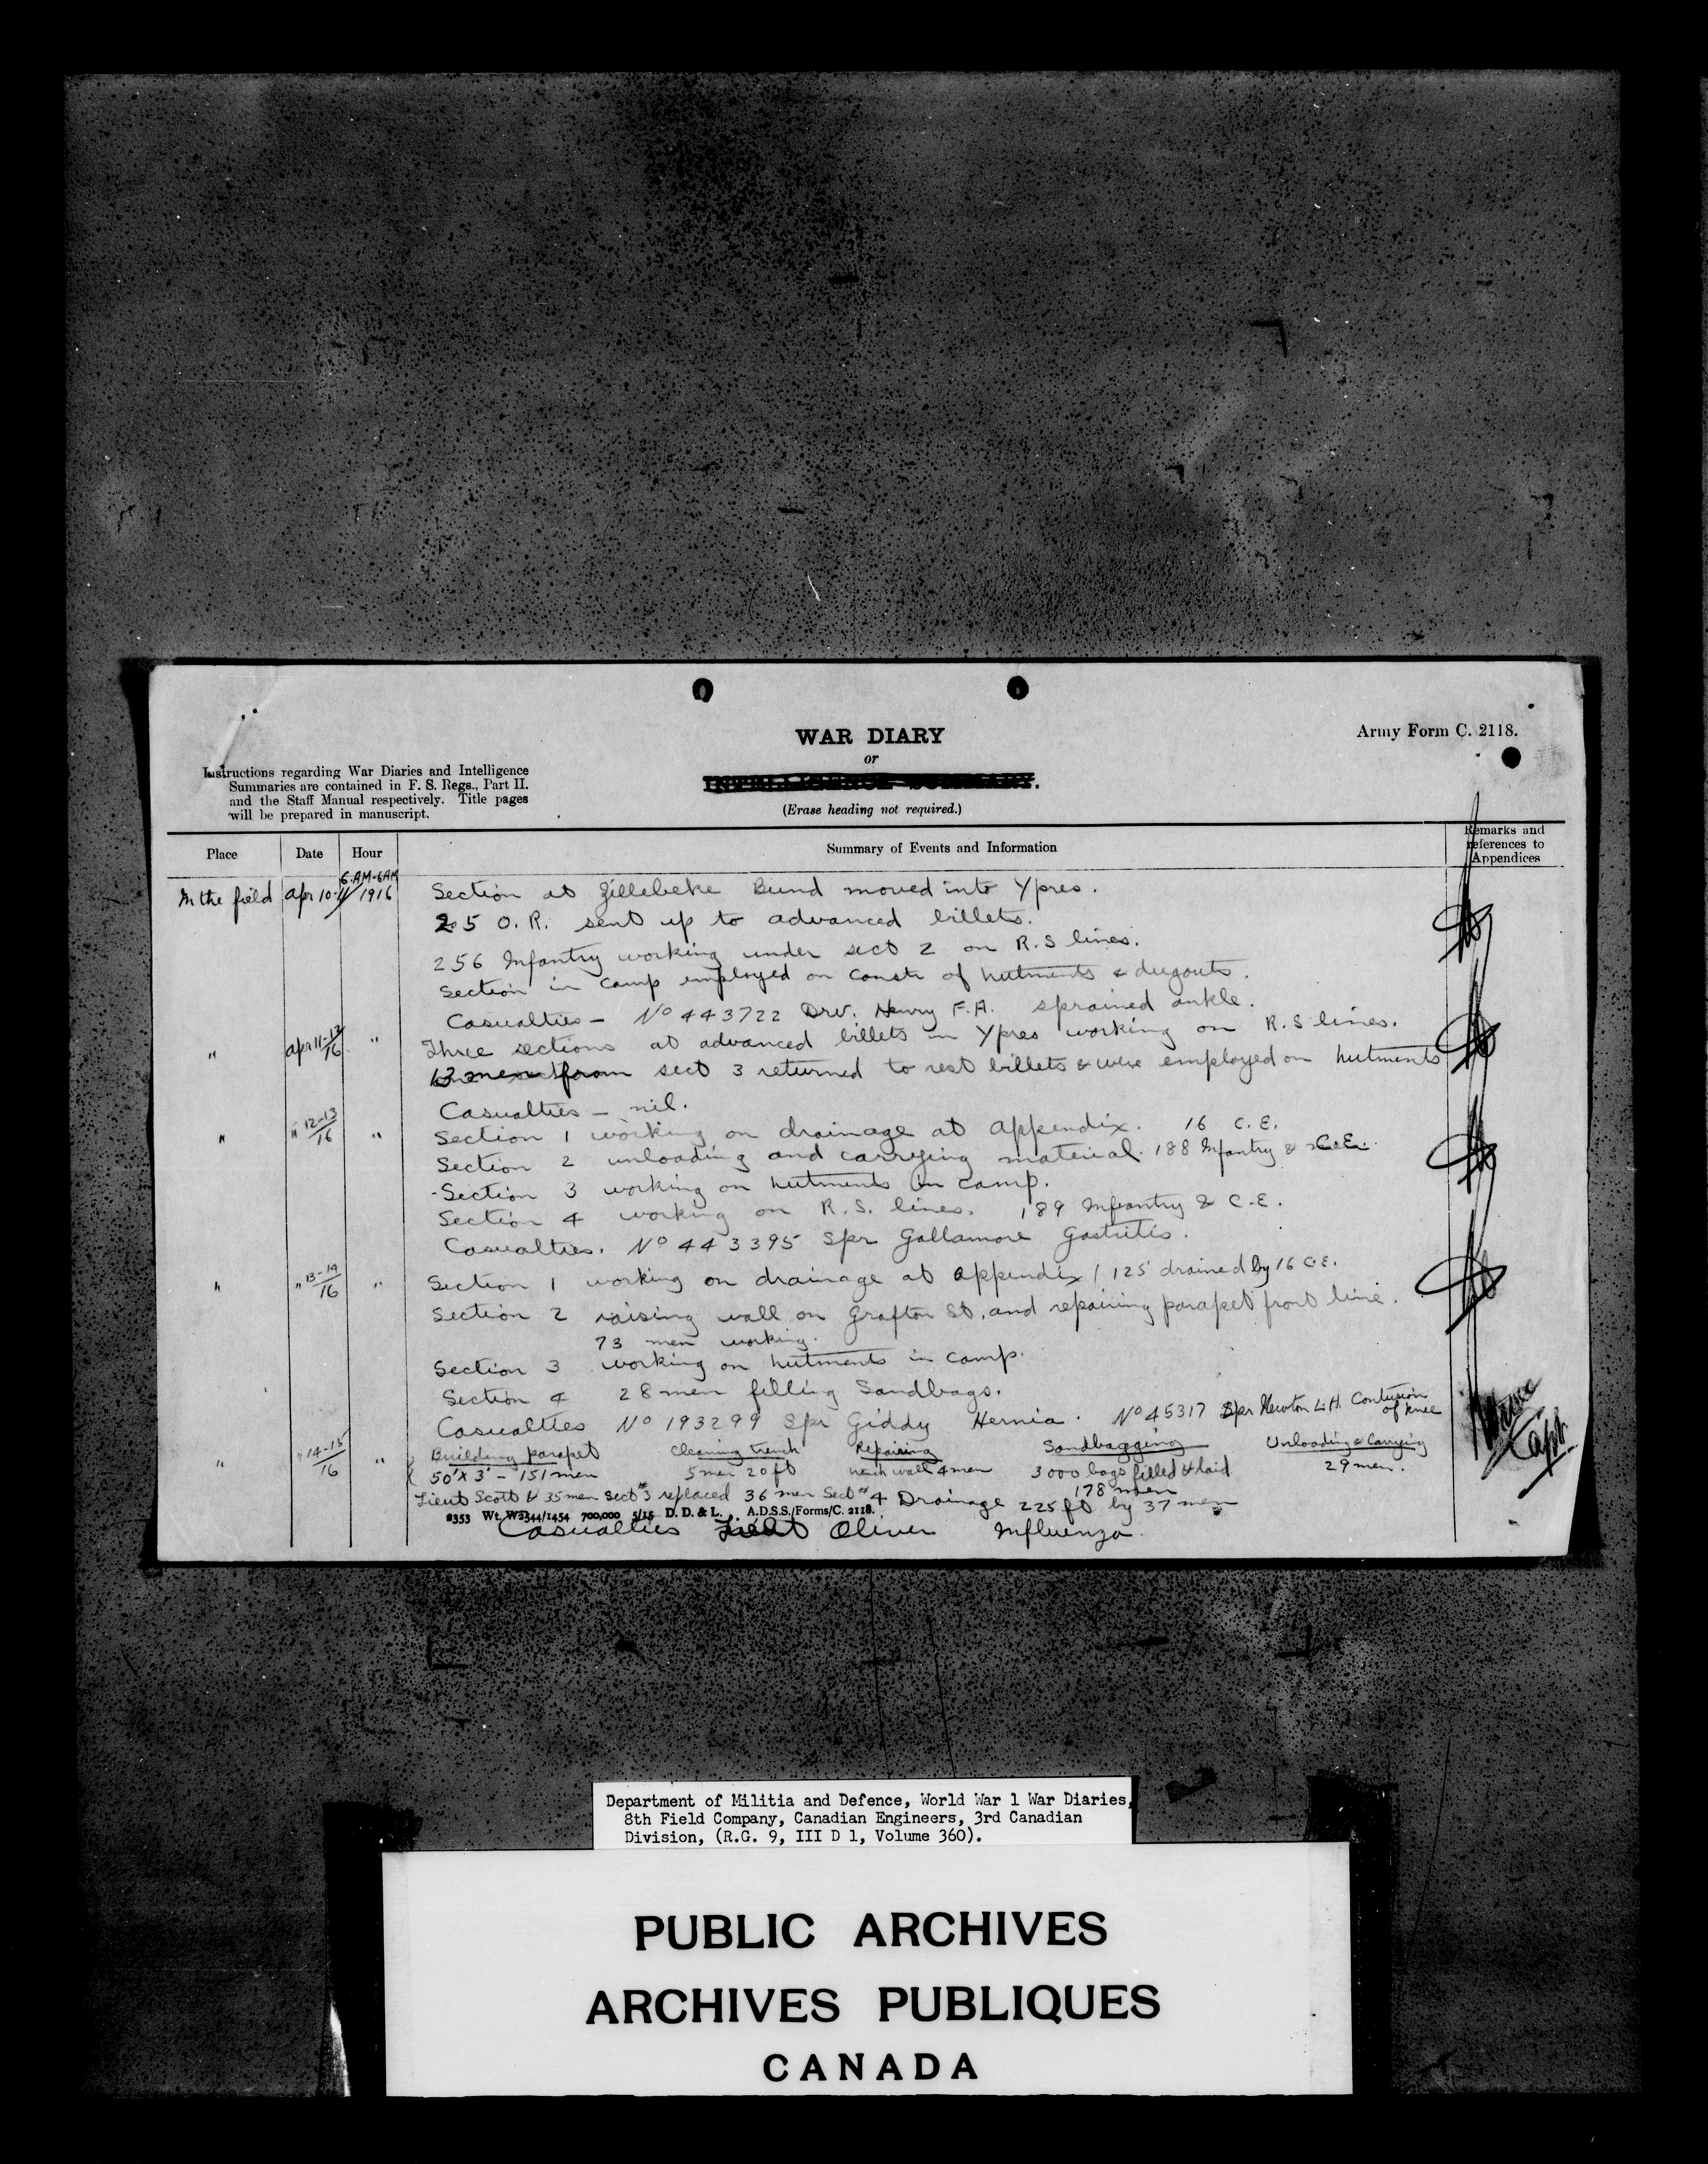 WAR DIARY
or
INTELLIGENCE SUMMARY.
(Erase heading not required.)
Army Form C. 2118.
Instructions regarding War Diaries and Intelligence
Summaries are contained in F. S. Regs., Part II.
and the Staff Manual respectively. Title pages
will be prepared in manuscript.
Place Date Hour Summary of Events and Information Remarks and references to Appendices
6 AM-6AM
In the field Apr 10-11/1916 Section at Zillebeke Bund moved into Ypres.
25 O.R. sent up to advanced billets.
256 Infantry working under sect 2 on R.S lines.
Section in camp employed on constr of hutments & dugouts.
Casualties - No 443722 Drv. Henry F.A. sprained ankle.
" Apr 11-12/16 " Three sections at advanced billets in Ypres working on R.S lines.
13 men from sect 3 returned to rest billets & were employed on hutments
Casualties - nil.
" " 12-13/16 " Section 1 working on drainage at Appendix. 16 C.E.
Section 2 unloading and carrying material. 188 Infantry & C.E.
Section 3 working on hutments in camp.
Section 4 working on R.S. lines. 189 Infantry & C.E.
Casualties. No 443395 Spr Gallamore Gastritis.
" " 13-14/16 " Section 1 working on drainage at Appendix / 125' drained by 16 C.E.
Section 2 raising wall on Grafton St. and repairing parapet front line.
73 men working.
Section 3 working on hutments in camp.
Section 4 28 men filling Sandbags.
Casualties No 193299 Spr Giddy Hernia. No 45317 Spr Newton L.H. Contusion of knee
" " 14-15/16 " Building parapet Cleaning trench Repairing Sandbagging Unloading & Carrying
50' x 3' - 151 men 5 men 20 ft wall 4 men 3000 bags filled & laid 29 men.
178 men
Lieut Scott & 35 men Sect #3 replaced 36 men Sect #4 Drainage 225 ft by 37 men
2353 Wt. W2344/1454 700,000 5/15 D. D. & L. A.D.S.S./Forms/C. 2118.
Casualties Lieut Oliver Influenza.
Capt.
Department of Militia and Defence, World War 1 War Diaries,
8th Field Company, Canadian Engineers, 3rd Canadian
Division, (R.G. 9, III D 1, Volume 360).
PUBLIC ARCHIVES
ARCHIVES PUBLIQUES
CANADA